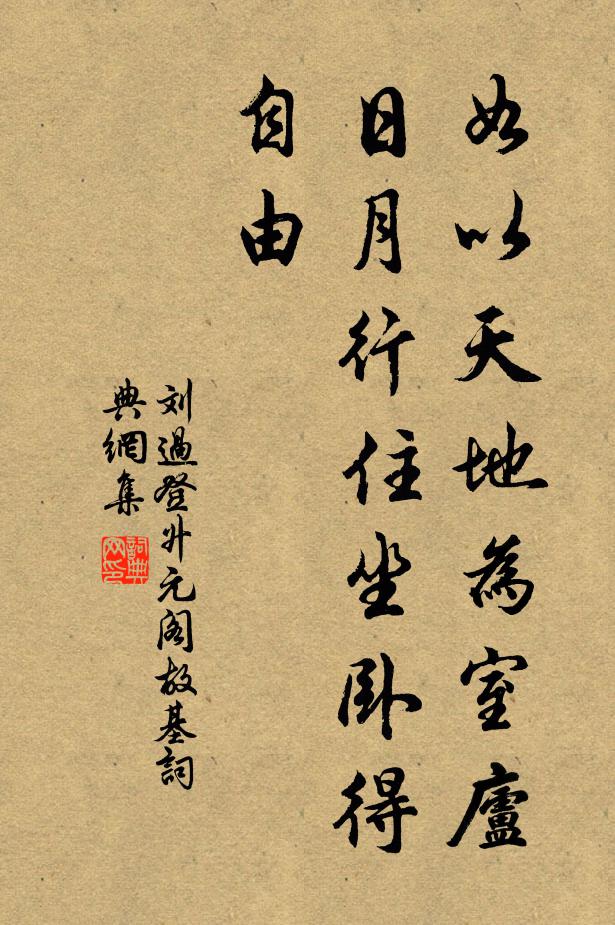 如以天地為室廬
日月行住坐卧得
自由
刘過登升元閣故基詞
典網集
詞典
网印